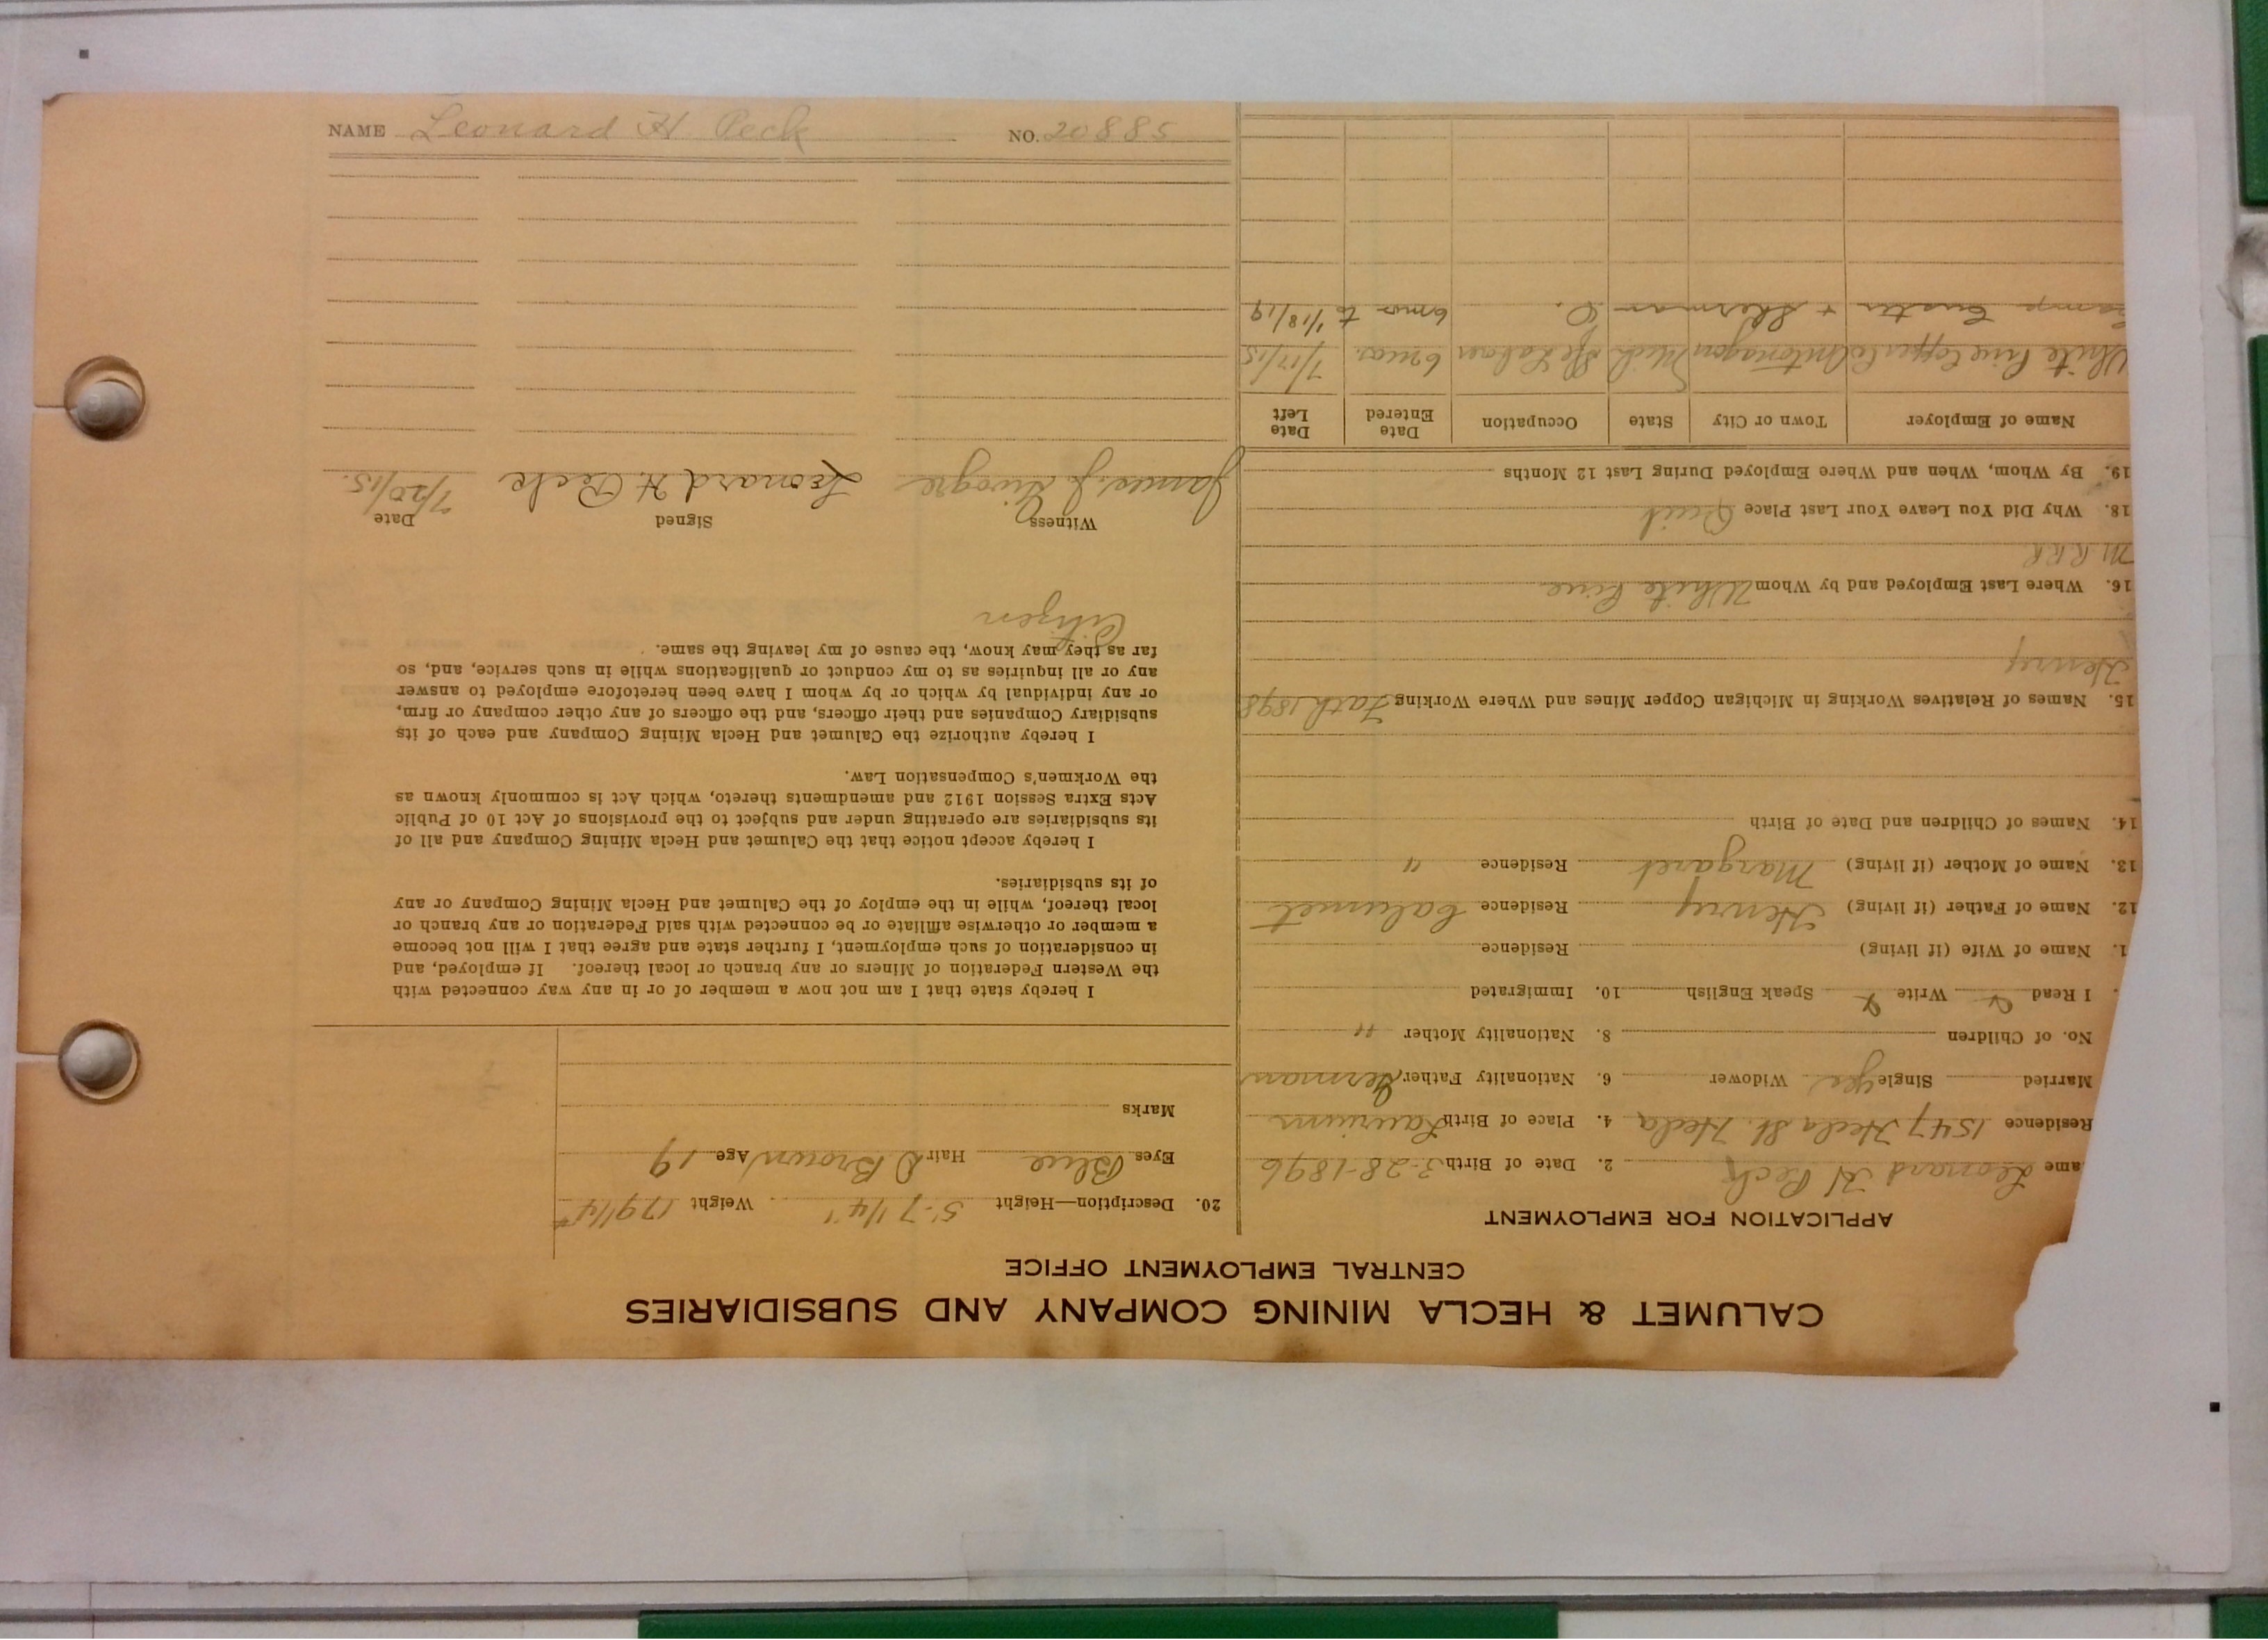 CALUMET & HECLA MINING COMPANY AND SUBSIDIARIES
CENTRAL EMPLOYMENT OFFICE
APPLICATION FOR EMPLOYMENT
ame Leonard H Peck 2. Date of Birth 3-28-1896
Residence 1547 Hecla St. Hecla 4. Place of Birth Laurium
Married Single yes Widower 6. Nationality Father, German
No. of Children 8. Nationality Mother "
. I Read Write Speak English 10. Immigrated
1. Name of Wife (if living) Residence
12. Name of Father (if living) Henry Residence Calumet
13. Name of Mother (if living) Margaret Residence "
14. Names of Children and Date of Birth
15. Names of Relatives Working in Michigan Copper Mines and Where Working Fath 1898
Henry
16. Where Last Employed and by Whom White Pine
M R R R
18. Why Did You Leave Your Last Place Quit
19. By Whom, When and Where Employed During Last 12 Months
Name of Employer Town or City State Occupation Date Entered Date Left
White Pine Copper Co Ontonagon Mich Sfc Labor 6 mos. 7/17/15
Camp Custer + Sherman 6 mos to 1/18/19
20. Description—Height 5'-7 1/4" Weight 179 1/4 #
Eyes Blue Hair D Brown Age 19
Marks
I hereby state that I am not now a member of or in any way connected with
the Western Federation of Miners or any branch or local thereof. If employed, and
in consideration of such employment, I further state and agree that I will not become
a member or otherwise affiliate or be connected with said Federation or any branch or
local thereof, while in the employ of the Calumet and Hecla Mining Company or any
of its subsidiaries.
I hereby accept notice that the Calumet and Hecla Mining Company and all of
its subsidiaries are operating under and subject to the provisions of Act 10 of Public
Acts Extra Session 1912 and amendments thereto, which Act is commonly known as
the Workmen's Compensation Law.
I hereby authorize the Calumet and Hecla Mining Company and each of its
subsidiary Companies and their officers, and the officers of any other company or firm,
or any individual by which or by whom I have been heretofore employed to answer
any or all inquiries as to my conduct or qualifications while in such service, and, so
far as they may know, the cause of my leaving the same.
Citizen
Witness Signed Date
James J. Leonard H. Peck 7/20/15.
NAME Leonard H Peck NO. 20885